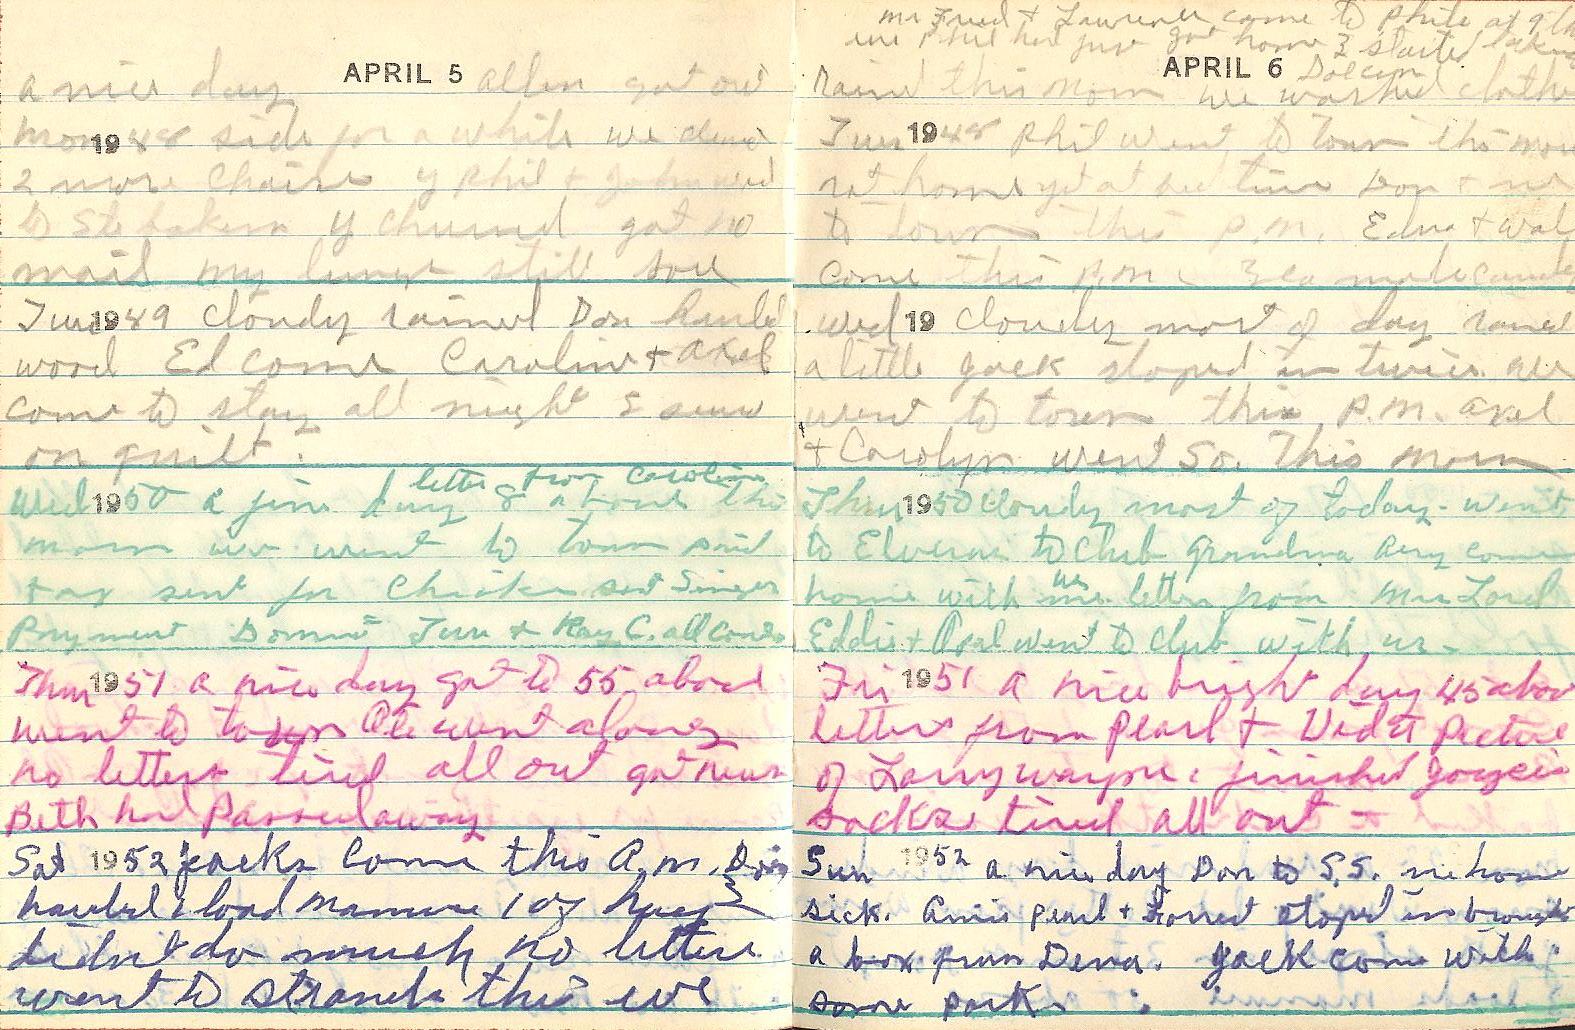 APRIL 5
a nice day Allen got out
Mon 1948 side for a while we
2 more Chairs y Phil + John
to y churned got no
mail my lungs still sore
Tues 1949 cloudy rained Don hauled
wood Ed come Caroline + Axel
come to stay all night & sew
on quilt.
letter from Caroline
Wed 1950 a fine day 8 above this
morn we went to town paid
tax sent for Chicks sent Singer
Payment Tom + Ray C. all
Thur 1951 a nice day got to 55 above
went to town Ole went along
no letters tired all out got news
Beth had Passed away
Sat 1952 Jacks come this A.m. Don
hauled 1 load manure 1 of hay
didn't do much no letter
went to Strands this eve
Mr Fred + Lawrence come to Phils at 9
Phil had just got home & started
APRIL 6
raind this morn we washed clothes
Tues 1948 Phil went to Town this morn
not home yet at bed time Don + me
to town this P.M. Edna + Wal
come this P.M. made candy
Wed 19 cloudy most of day raind
a little Jack stoped in twice we
went to town this P.M. Axel
+ Carolyn went So. This morn
Thur 1950 cloudy most of today - went
to Elveras to Club Grandma Avry come
home with us me letter from Mrs Lord
Eddie + Opal went to club with us -
Fri 1951 a nice bright day 45 above
letters from Pearl + Picture
of Larry wayne, finished Joyces
socks tired all out -
Sun 1952 a nice day Don to S.S. me home
sick. Amis Pearl + Forrest stoped in brought
a box from Dena. Jack come with
some pork.